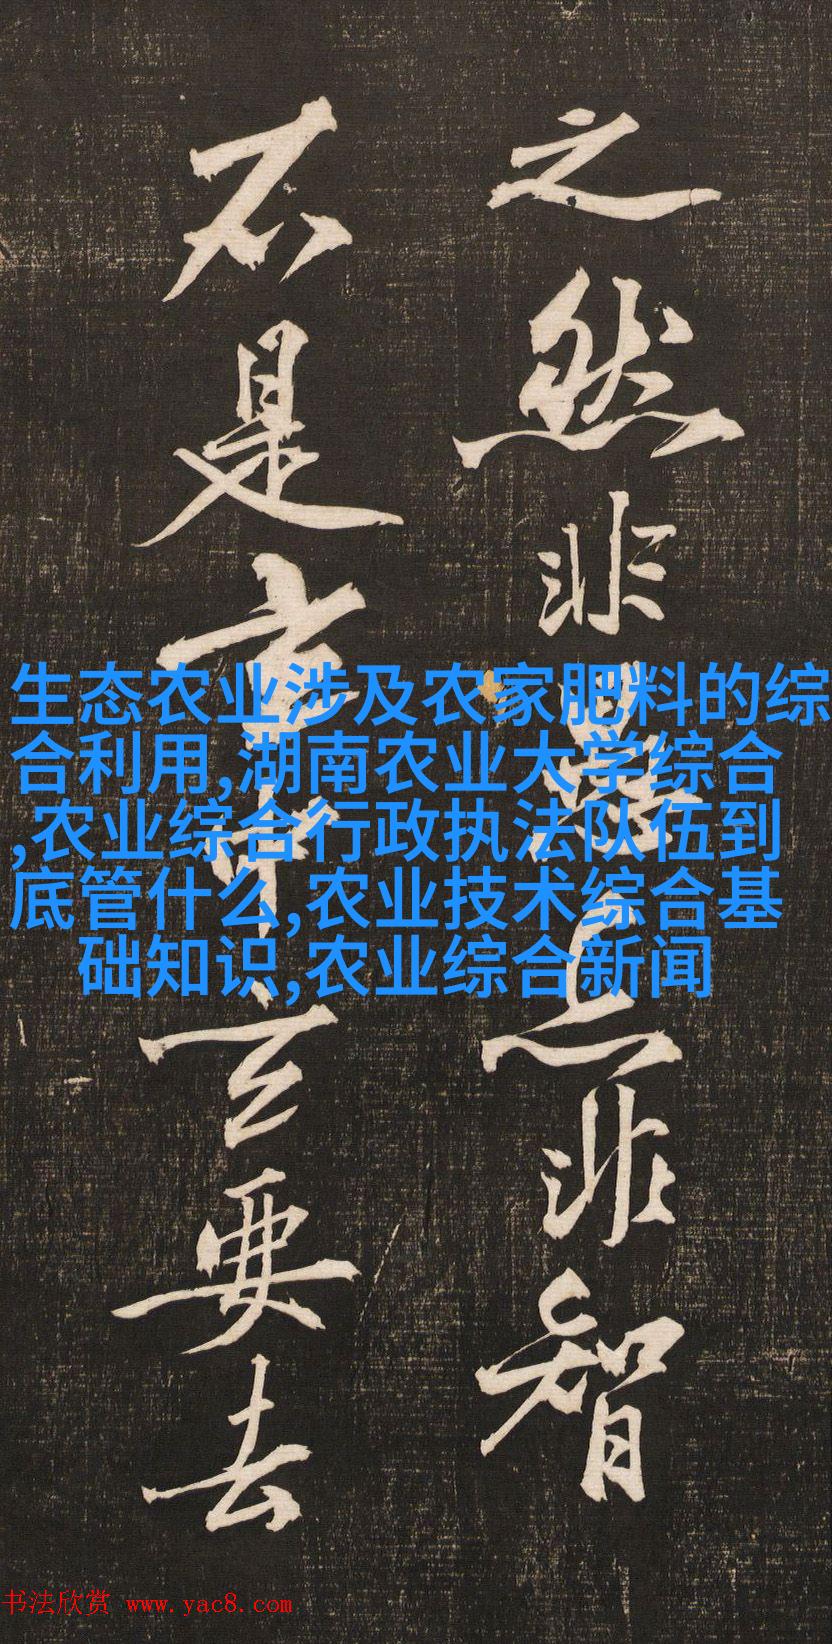 之然非愚上非智
不是中要去
生态农业涉及农家肥料的综
合利用,湖南农业大学综合
,农业综合行政执法队伍到
底管什么,农业技术综合基
础知识,农业综合新闻
书法欣赏 www.yac8.com